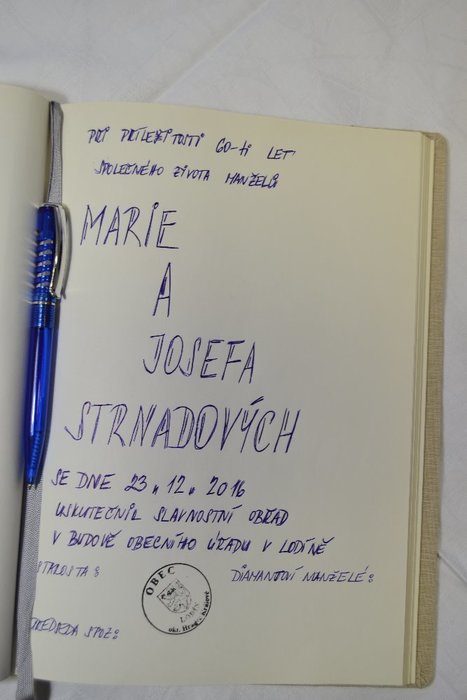 PŘI PŘÍLEŽITOSTI 60-ti LET
SPOLEČNÉHO ŽIVOTA MANŽELŮ
MARIE
A
JOSEFA
STRNADOVÝCH
SE DNE 23. 12. 2016
USKUTEČNIL SLAVNOSTNÍ OBŘAD
V BUDOVĚ OBECNÍHO ÚŘADU V LODÍNĚ
STAROSTA: DIAMANTOVÍ MANŽELÉ:
OBEC
LODÍN
okr. Hradec Králové
PŘEDSEDA SPOZ: